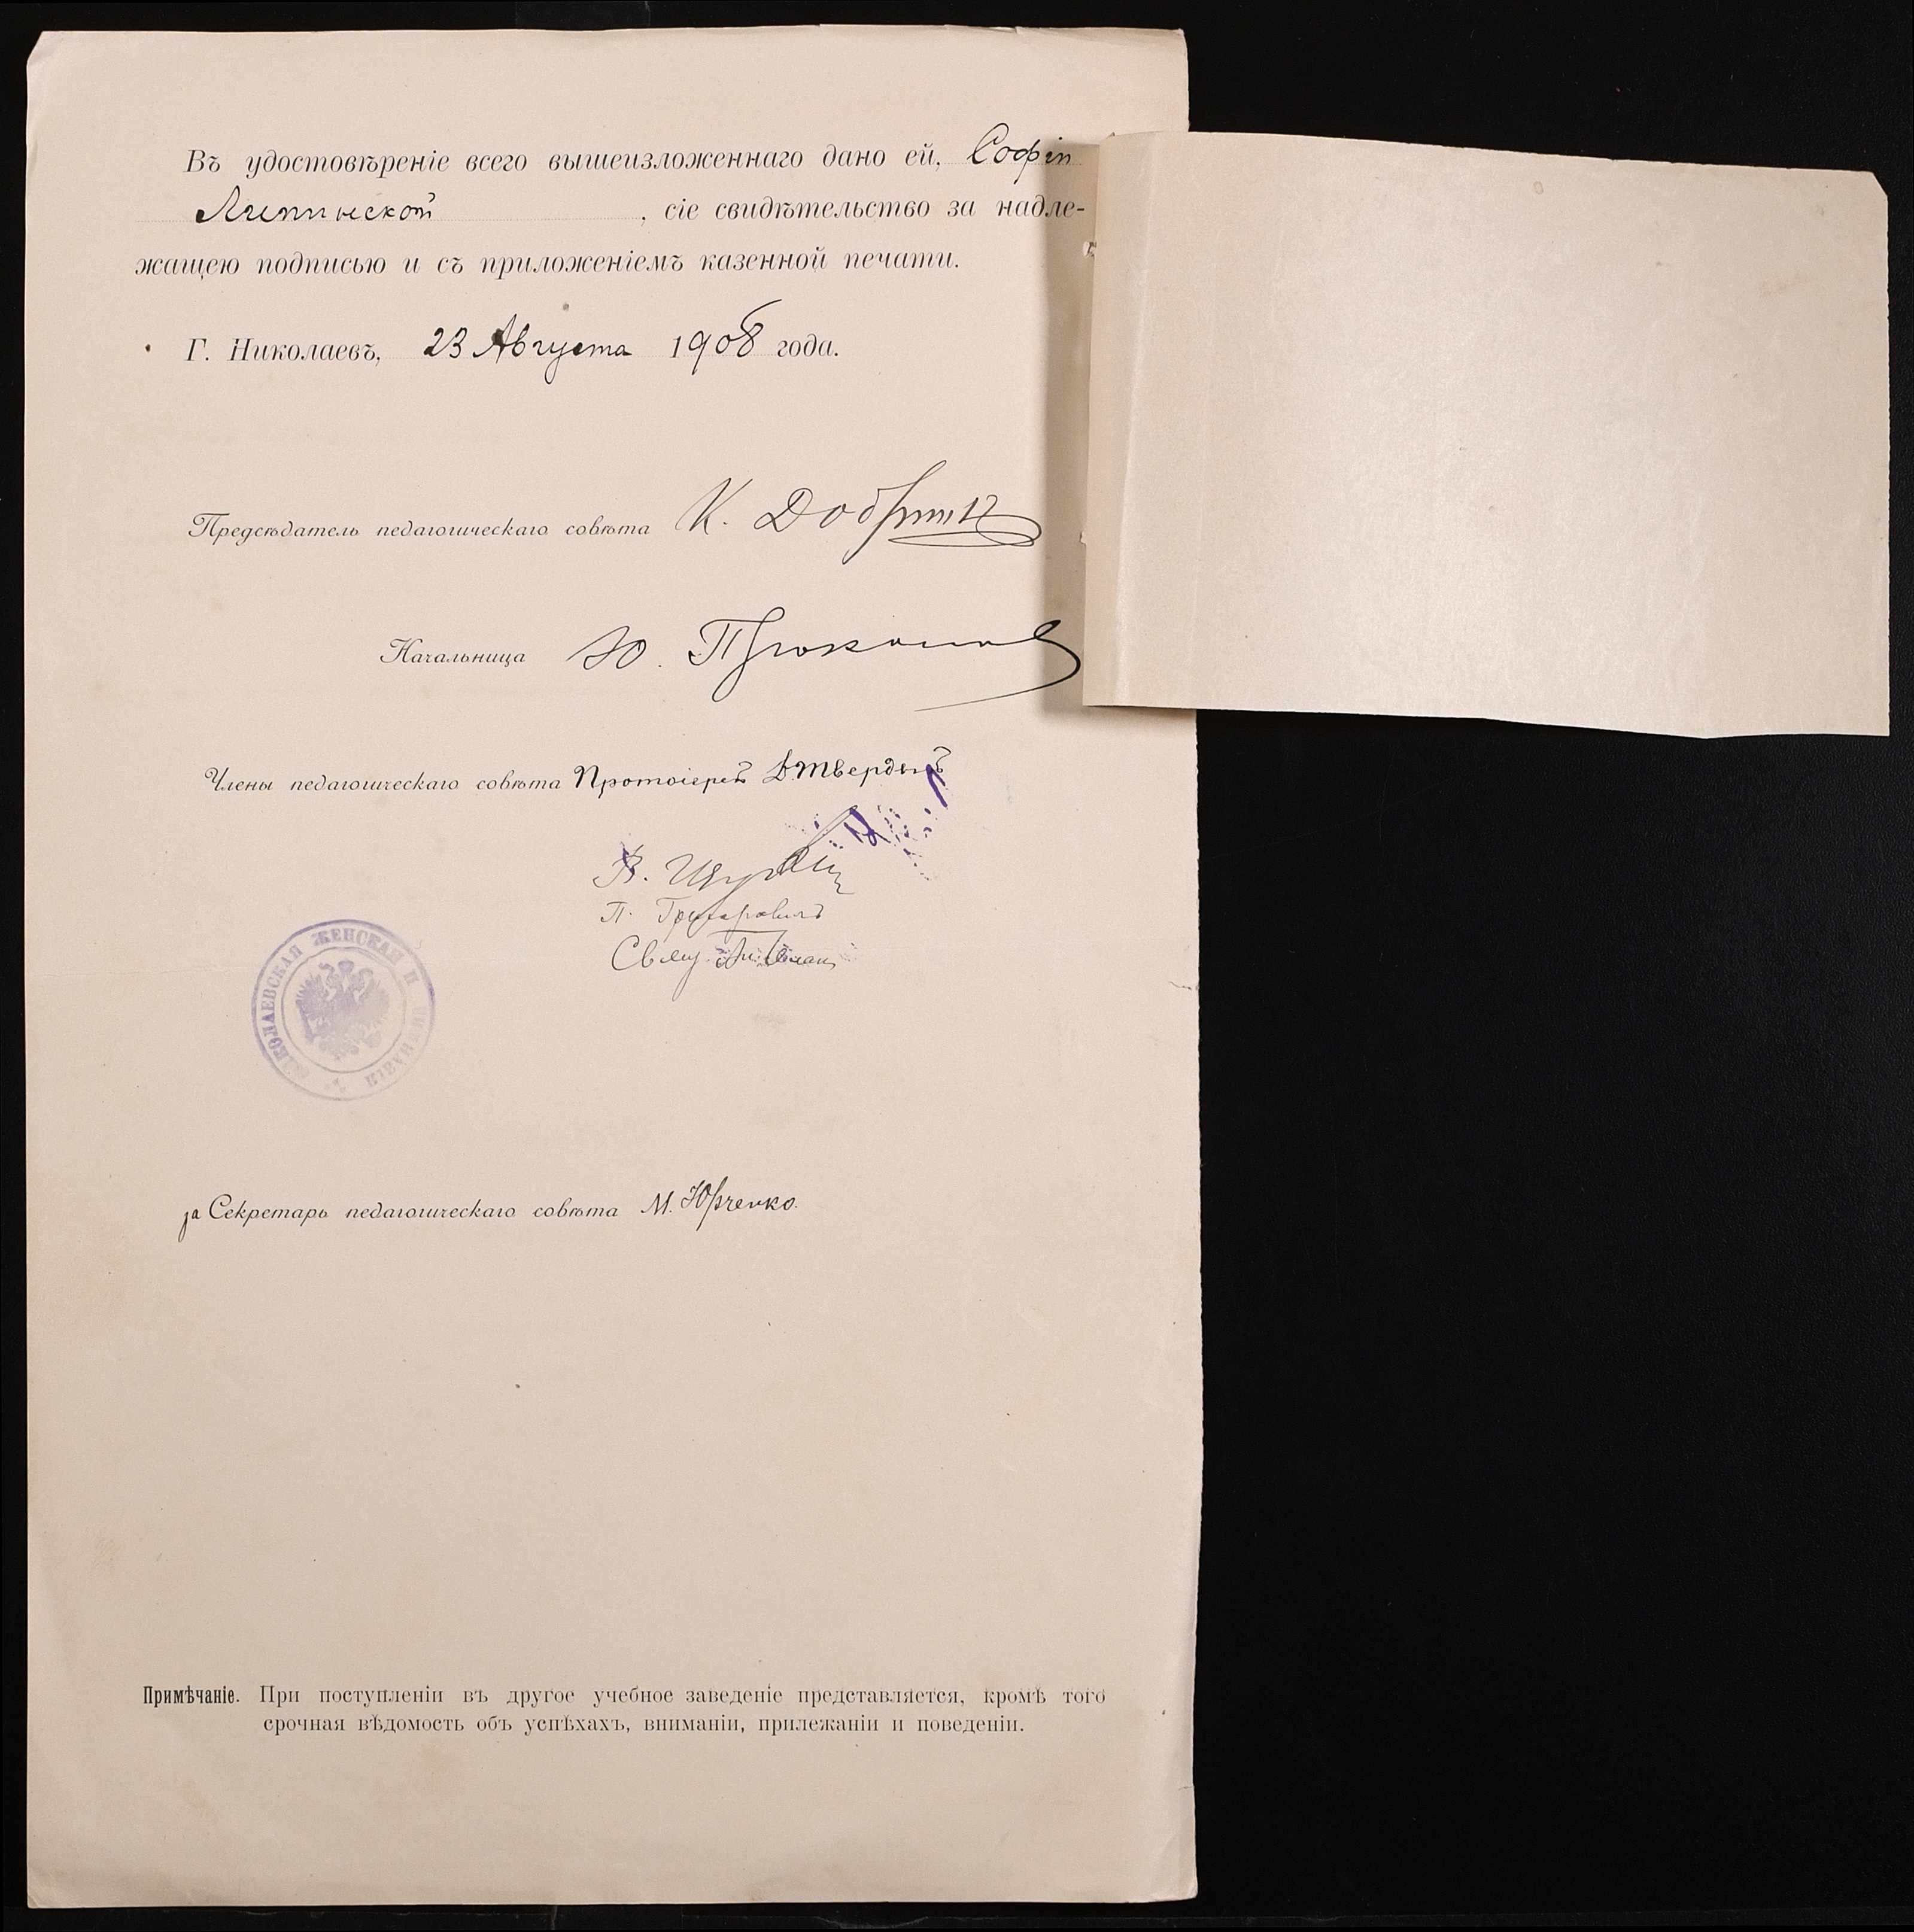 Въ удостовѣреніе всего вышеизложеннаго дано ей, Софіи
Липинской, сіе свидѣтельство за надле-
жащею подписью и съ приложеніемъ казенной печати.
Г. Николаевъ, 23 Августа 1908 года.
Предсѣдатель педагогическаго совѣта К.
Начальница Ю.
Члены педагогическаго совѣта Протоіерей
В.
П.
Свящ.
НИКОЛАЕВСКАЯ ЖЕНСКАЯ ГИМНАЗІЯ
за Секретарь педагогическаго совѣта М. Юрченко.
Примѣчаніе. При поступленіи въ другое учебное заведеніе представляется, кромѣ того
срочная вѣдомость объ успѣхахъ, вниманіи, прилежаніи и поведеніи.